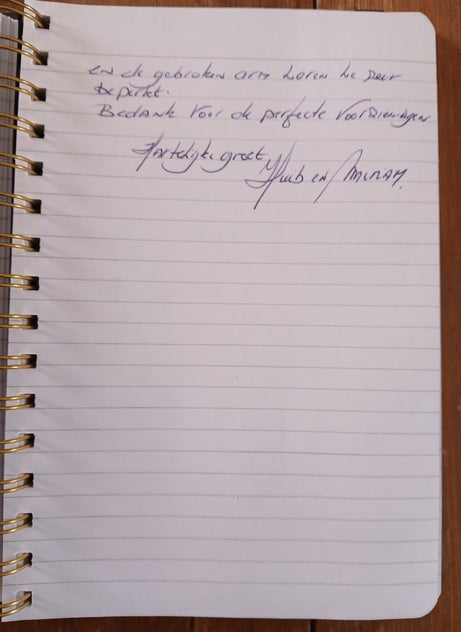 en de gebroken arm waren we zeer
beperkt.
Bedankt voor de perfecte voorzieningen
Hartelijke groet,
Huib en